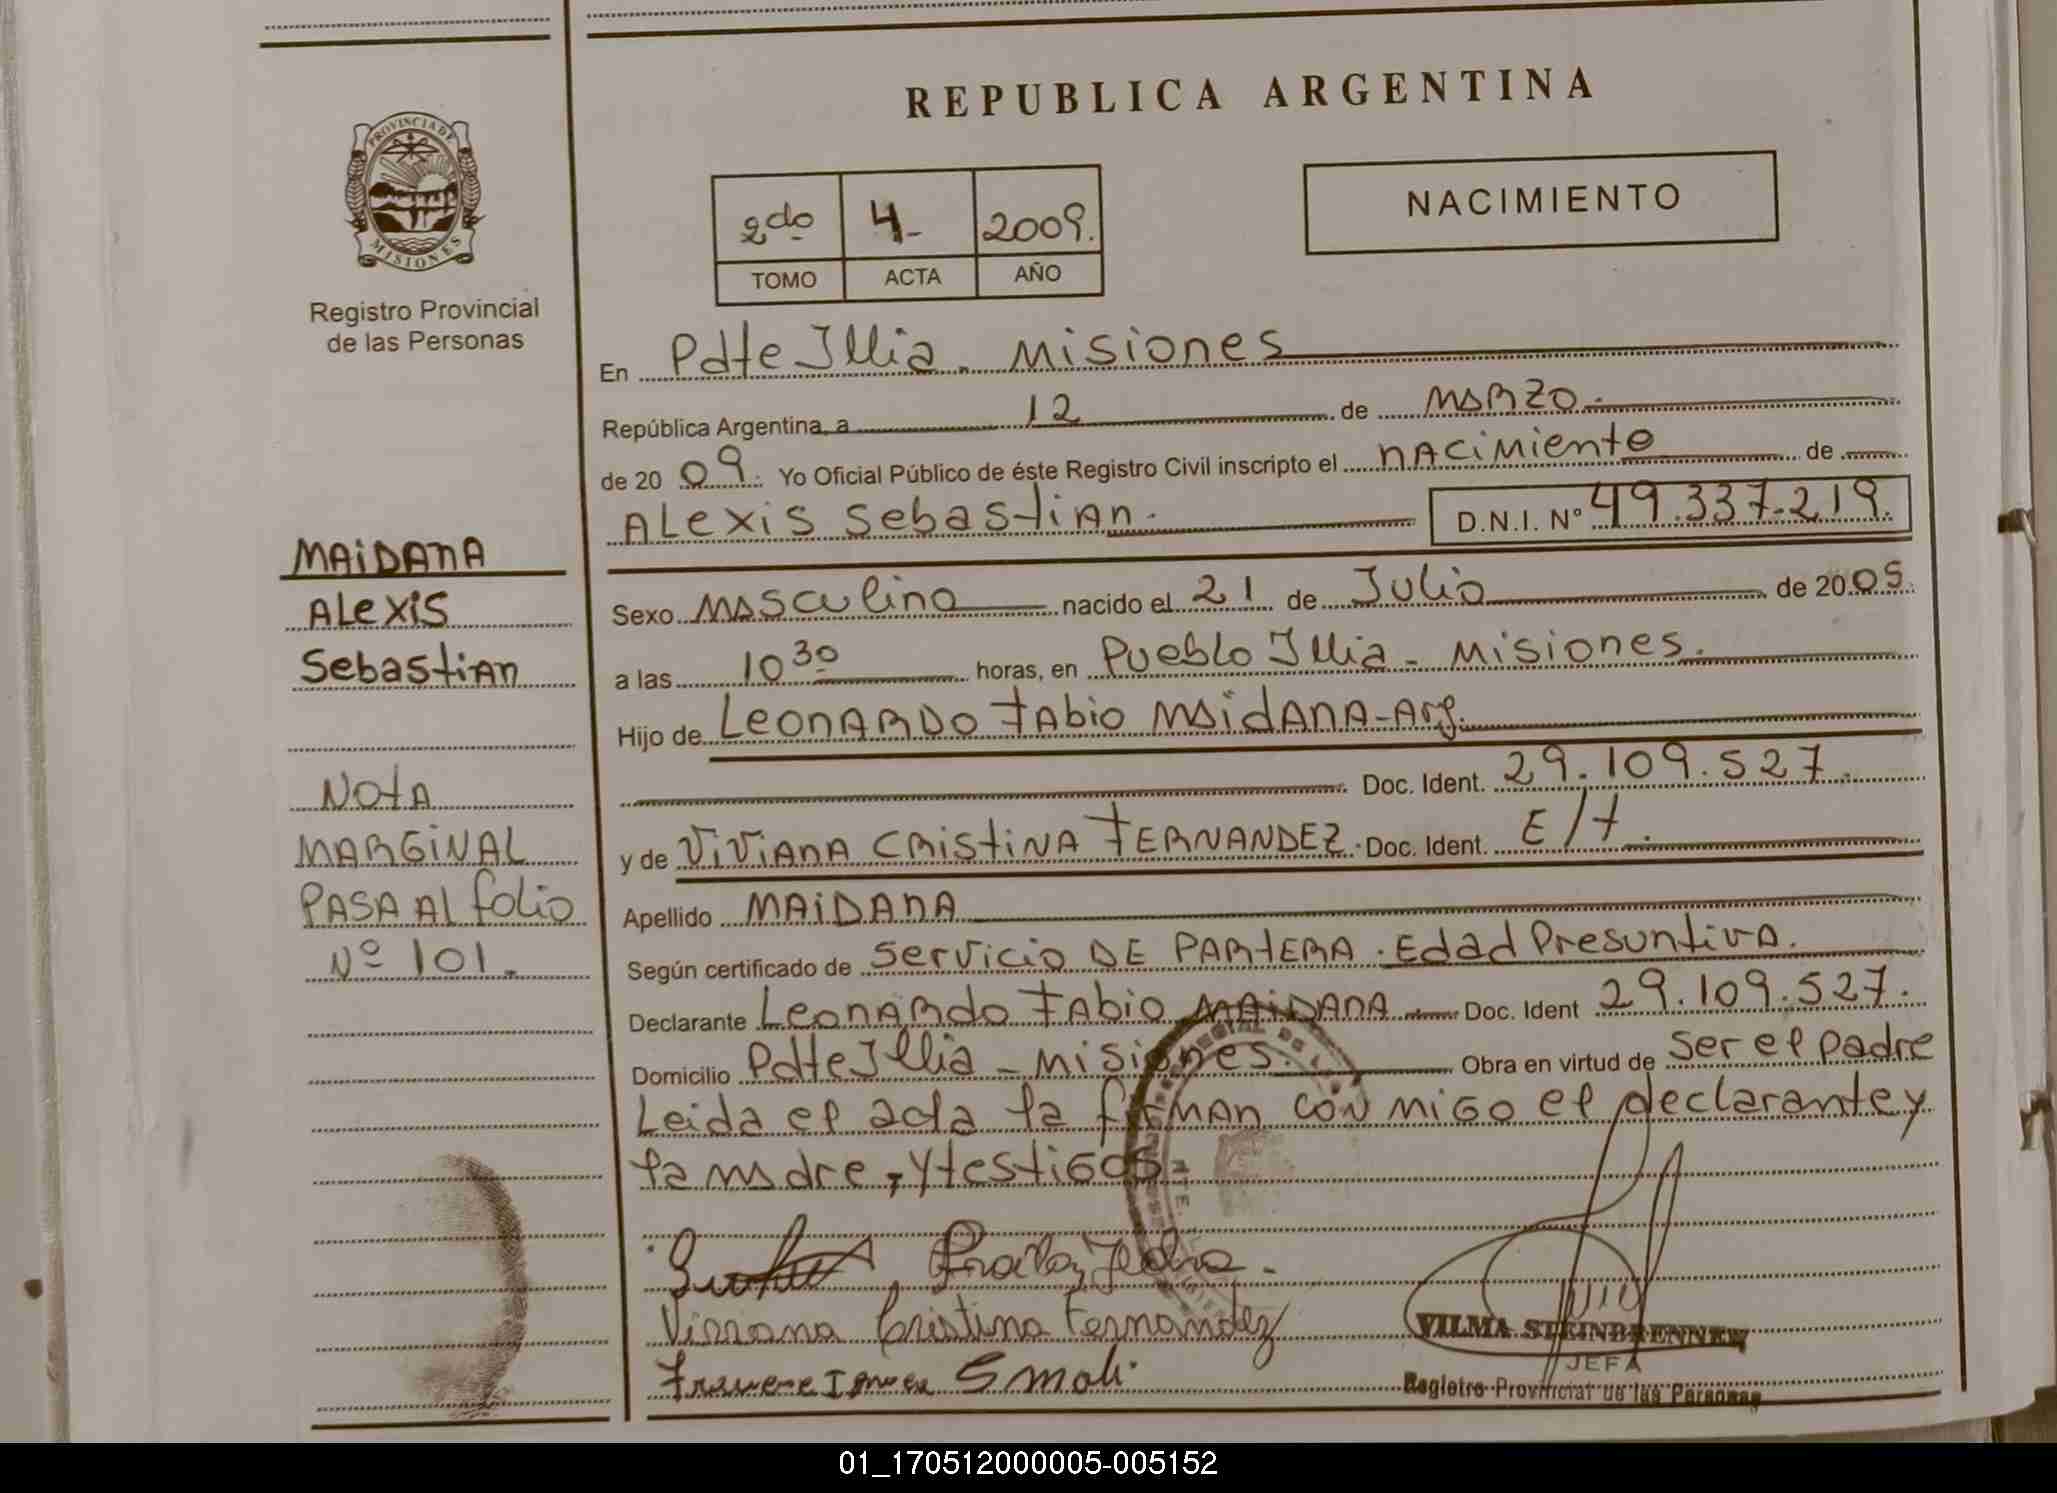 REPUBLICA ARGENTINA
NACIMIENTO
2do 4- 2009.
TOMO ACTA AÑO
PROVINCIA DE
MISIONES
Registro Provincial
de las Personas
En Pdte Illia. Misiones
República Argentina, a 12 de Marzo.
de 2009. Yo Oficial Público de éste Registro Civil inscripto el nacimiento de
Alexis Sebastian. D.N.I. Nº 49.337.219.
Sexo Masculino nacido el 21 de Julio de 2005.
a las 10 30 horas, en Pueblo Illia - Misiones.
Hijo de Leonardo Fabio Maidana - Arg.
Doc. Ident. 29.109.527.
y de Viviana Cristina Fernandez. Doc. Ident. E/t.
Apellido Maidana
Según certificado de Servicio de Partera. Edad Presuntiva.
Declarante Leonardo Fabio Maidana Doc. Ident 29.109.527.
Domicilio Pdte Illia - Misiones. Obra en virtud de ser el padre
Leida el acta la firman con migo el declarante y
la madre, y testigos.
Viviana Cristina Fernandez
VILMA STEINBRENNER
JEFA
Registro Provincial de las Personas
MAIDANA
ALEXIS
Sebastian
Nota
Marginal
Pasa al folio
Nº 101.
01_170512000005-005152